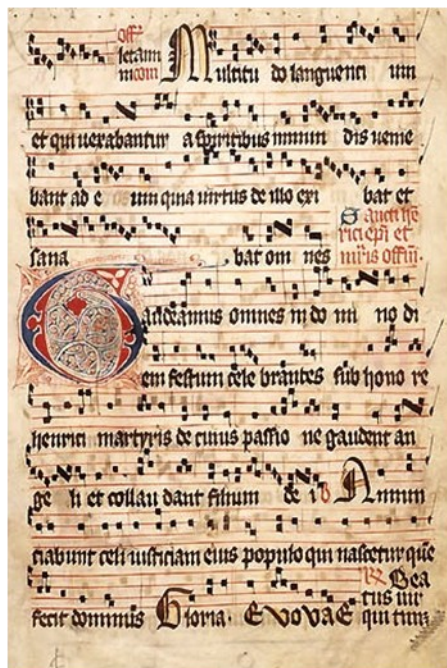 off̄
letam
in com Multitu do languenti um
et qui uexabantur a spiritibus inmun dis uenie
bant ad e um quia uirtus de illo exi bat et
Sancti he
rici epi et
mris offm.
sana bat om nes
Gaudeamus omnes in do mi no di
em festum cele brantes sub hono re
henrici martyris de cuius passio ne gaudent an
ge li et collau dant filium de i Annun
ciabunt celi iusticiam eius populo qui nascetur quē
Bea
tus uir
fecit dominus Gloria. EVOVAE qui tim